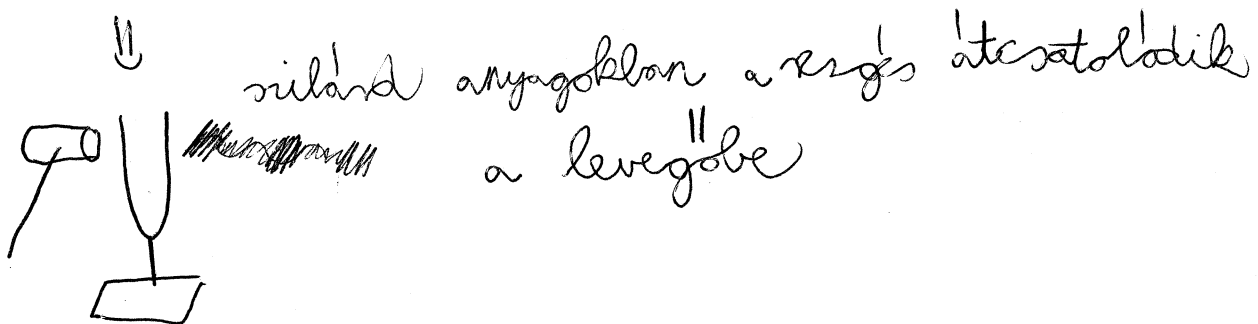 szilárd anyagokban a rezgés átcsatolódik
a levegőbe